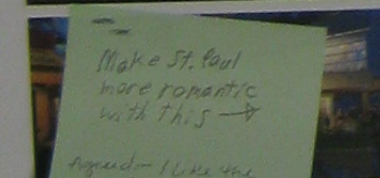 Make St. Paul
more romantic
with this →
Agreed - I like the